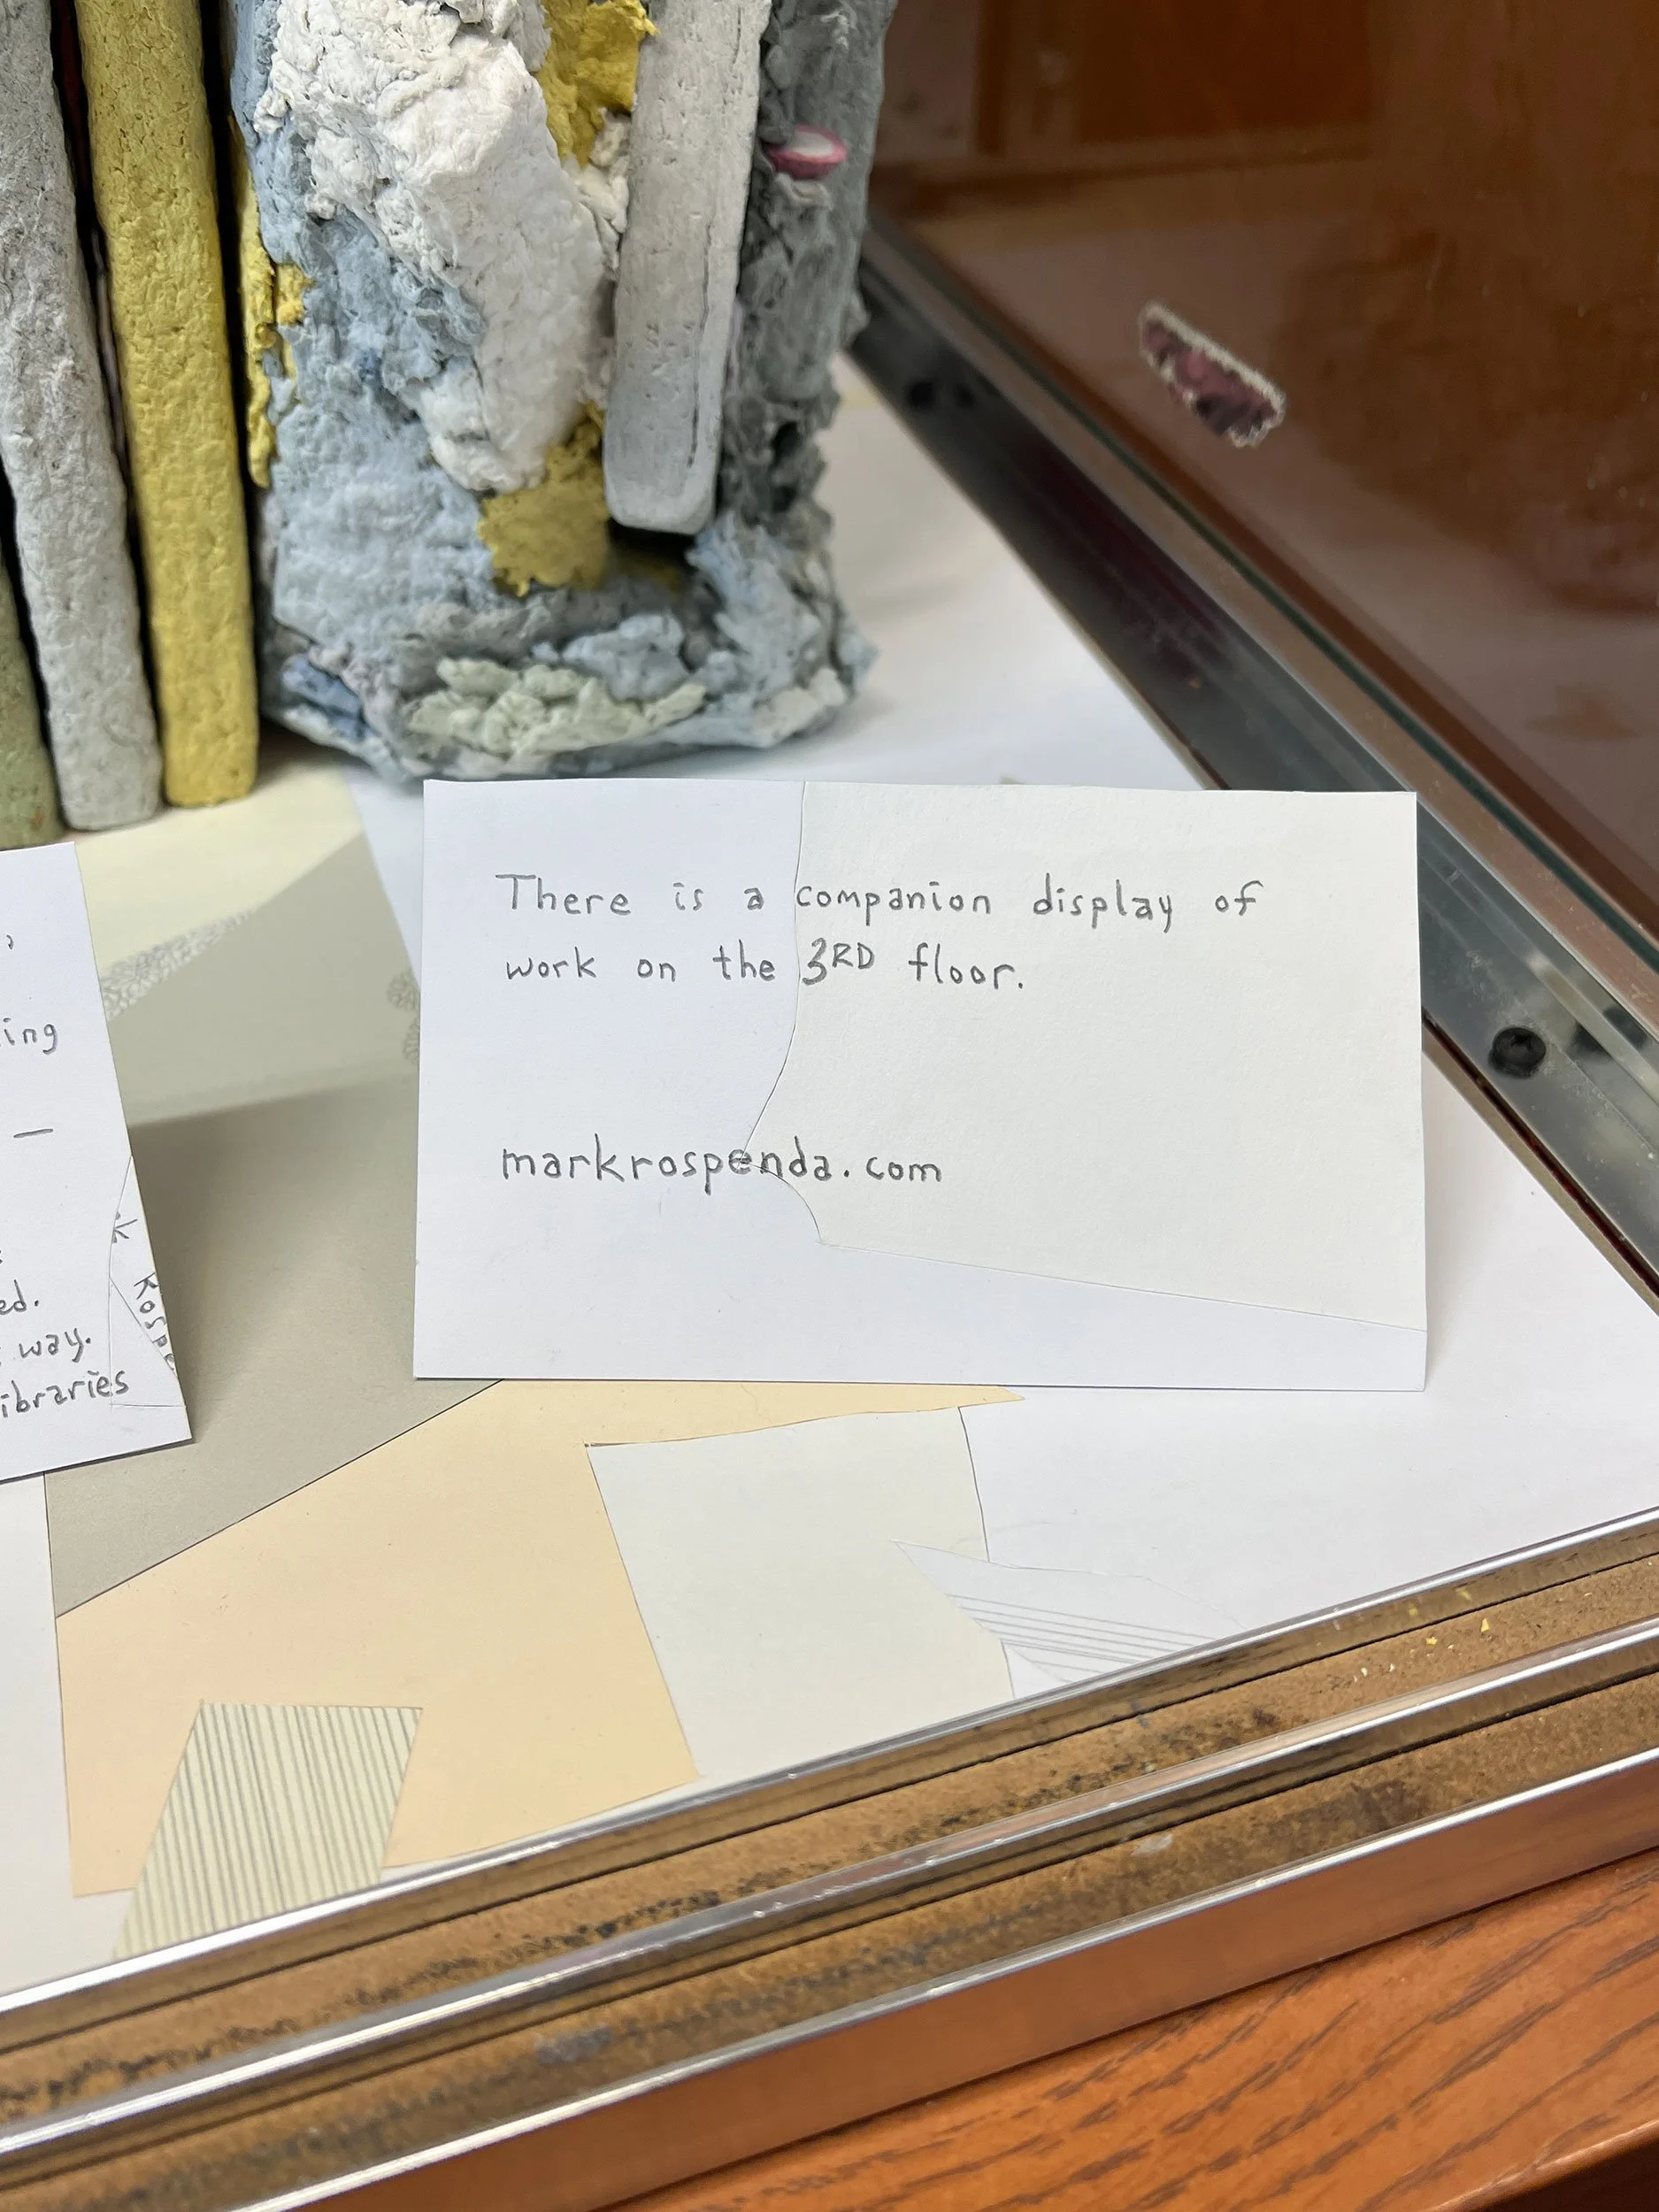 There is a companion display of
work on the 3RD floor.
markrospenda.com
ing
—
ed.
way.
ibraries
k
Rospe